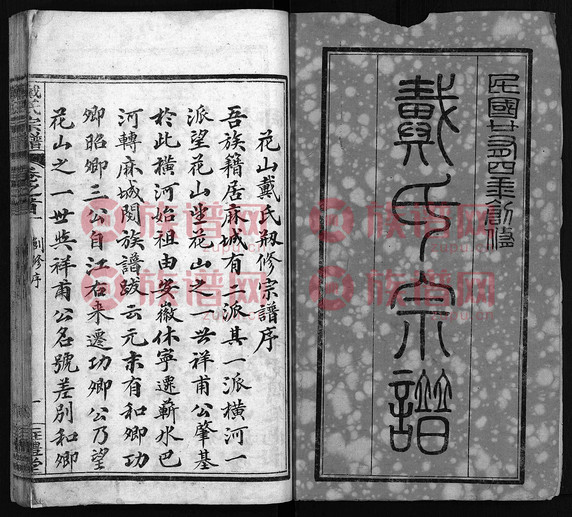 民國廿四年創修
戴氏宗譜
花山戴氏刱修宗譜序
吾族籍居麻城有二派其一派橫河一
派望花山坐花山之一世祥甫公肇基
於此橫河始祖由安徽休寧遷蘄水巴
河轉麻城閱族譜跋云元末有和卿功
卿昭卿三公自江右來遷功卿公乃望
花山之一世與祥甫公名號差別和卿
戴氏宗譜
卷之首
創修序
一
族谱网
族谱网
族谱网
族谱网
族谱网
族谱网